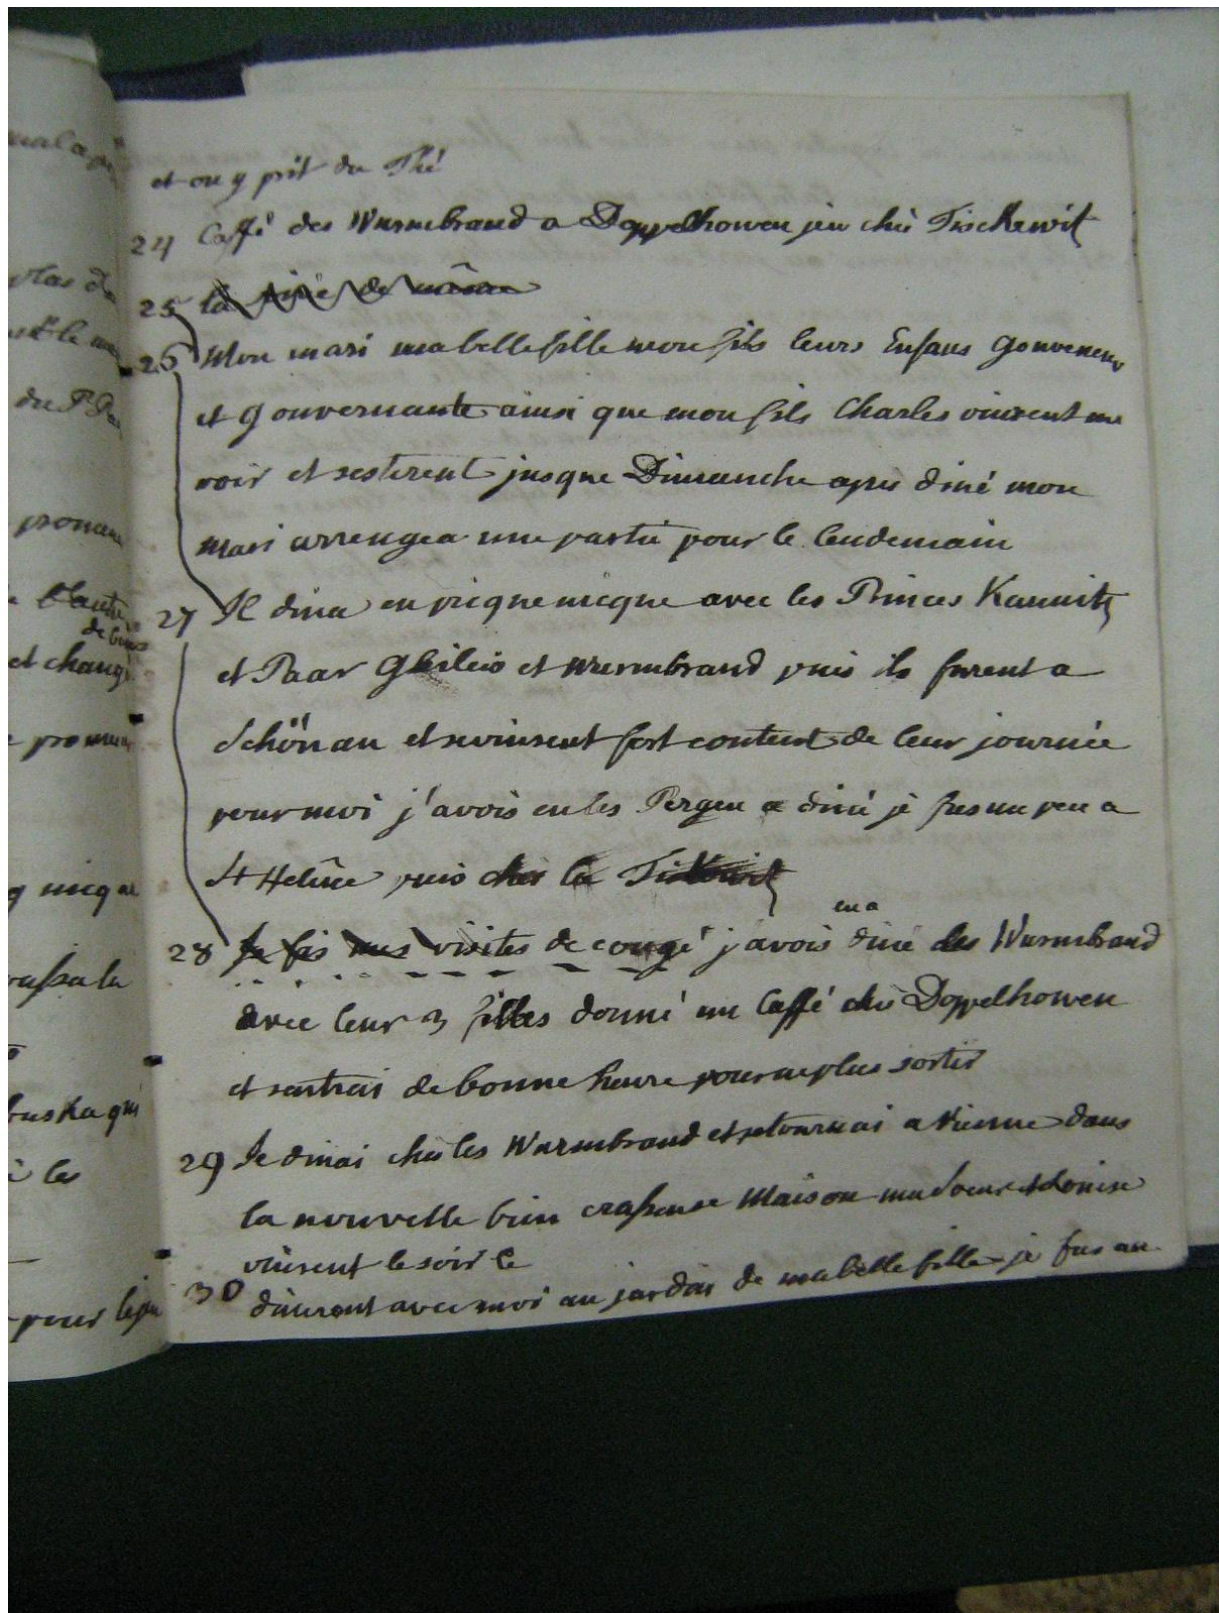 et on y prit du Thé
24 Caffé des Wurmbrand a Doppelhowen jeu chés Tisckewitz
25 la
26 Mon mari ma belle fille mon fils leurs Enfans gouverneur
et gouvernante ainsi que mon fils Charles vinrent me
voir et resterent jusque Dimanche apres diné mon
mari arrengea une partie pour le lendemain
27 Il dina en picque nicque avec les Princes Kaunitz
et Paar et Wurmbrand puis ils furent a
Schönau et revinrent fort content de leur journée
pour moi j'avois eu les Pergen a diné je fus un peu a
St Heléne puis chés la Tiskewitz
28 Je fis mes visites de congé j'avois eu a diné les Wurmbrand
avec leur 3 filles donné un Caffé chés Doppelhowen
et rentrai de bonne heure pour ne plus sortir
29 Je dinai chés les Wurmbrand et retournai a Vienne dans
la nouvelle bien crasseuse Maison ma soeur et Louise
vinrent le soir le
30 dinerent avec moi au jardin de ma belle fille je fus au
mal a
plus d
et le
du P
promen
de
et chang
e promen
q nicque
passa la
buska qui
les
pour le jeu